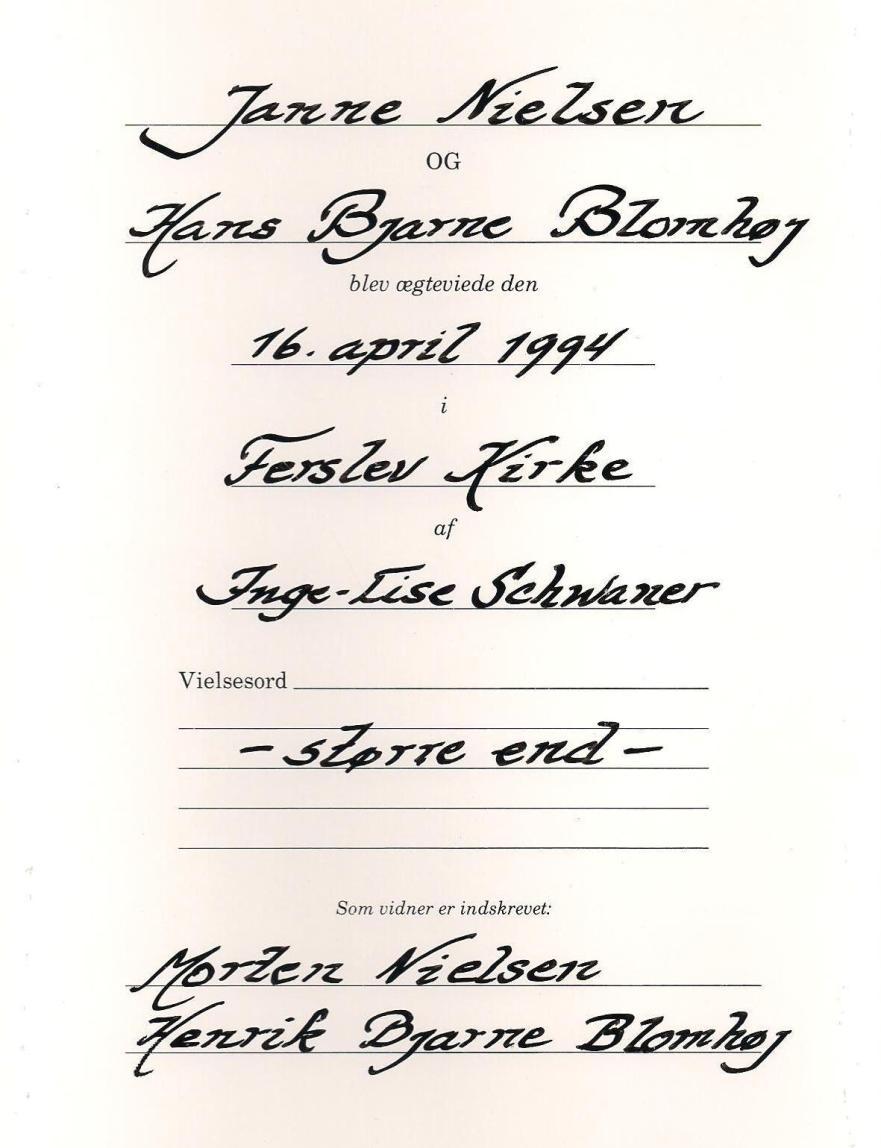 Janne Nielsen
OG
Hans Bjarne Blomhøj
blev ægteviede den
16. april 1994
i
Ferslev Kirke
af
Inge-Lise Schwaner
Vielsesord
- større end -
Som vidner er indskrevet:
Morten Nielsen
Henrik Bjarne Blomhøj